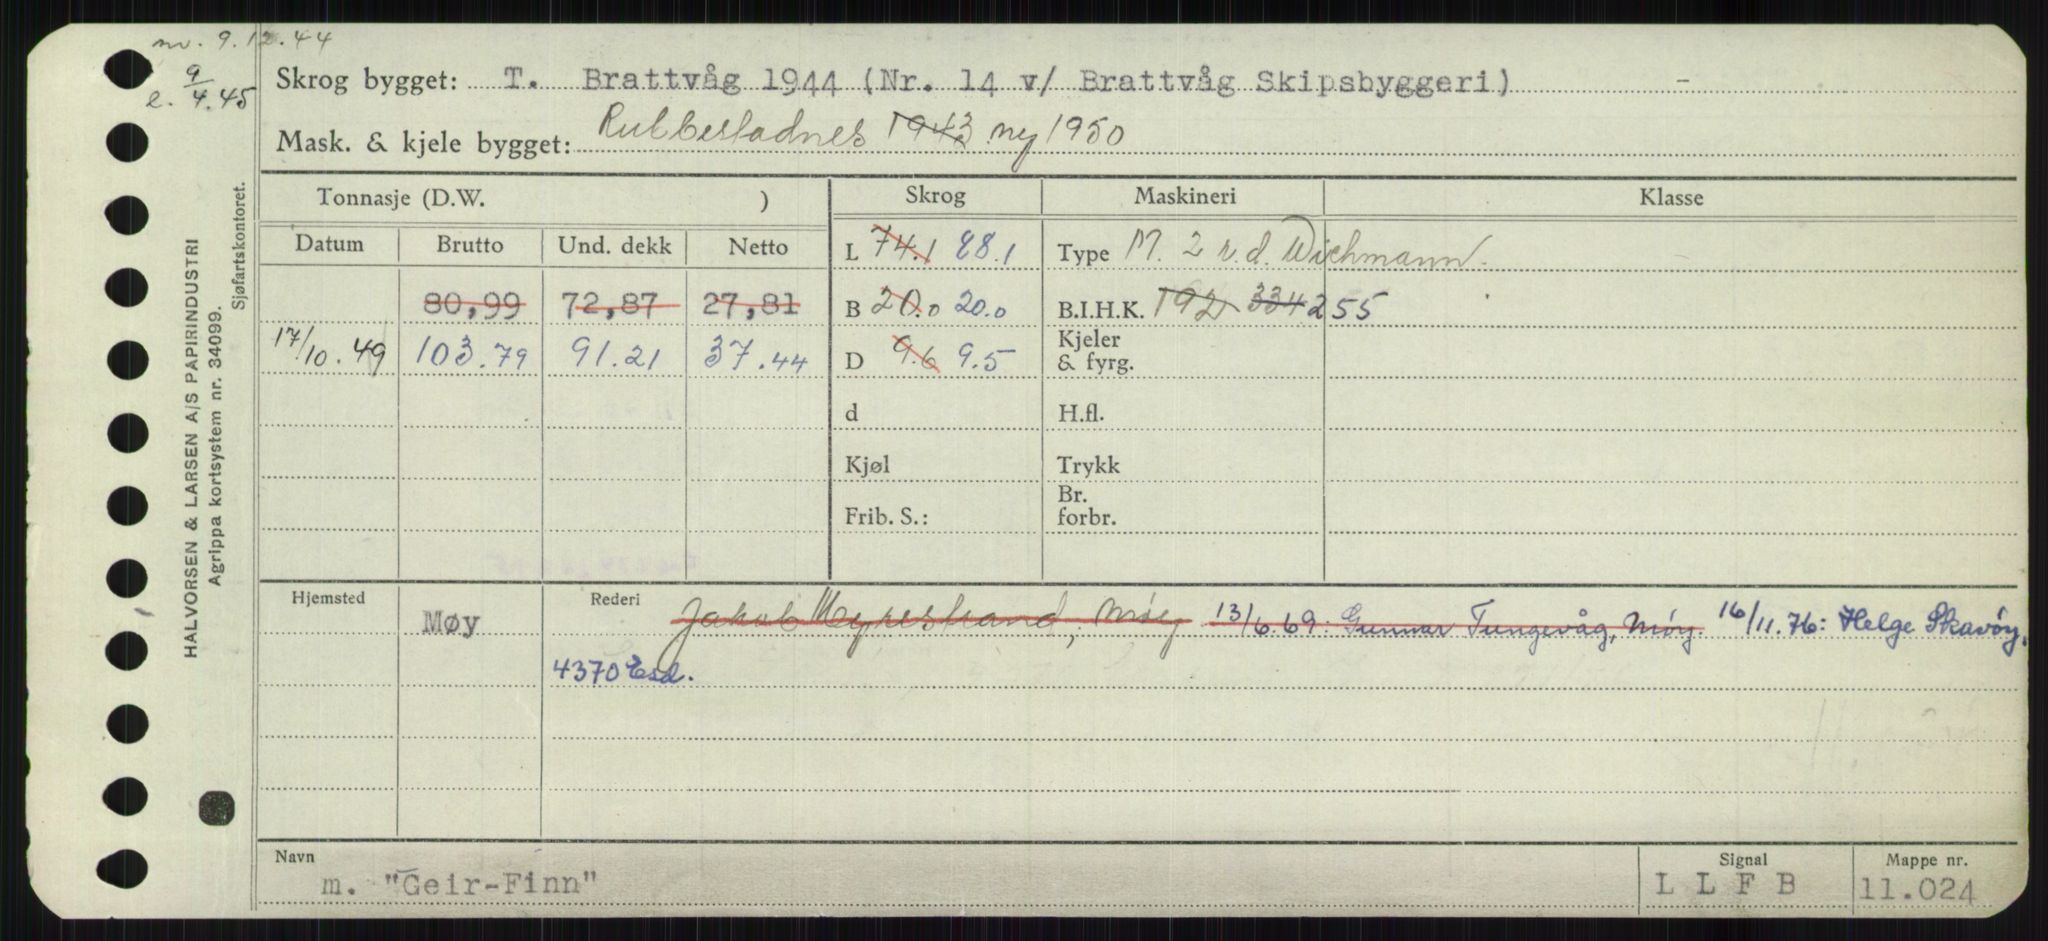 nv. 9.12.44
e. 9/4.45
Skrog bygget: T. Brattvåg 1944 (Nr. 14 v/ Brattvåg Skipsbyggeri) -
Mask. & kjele bygget: Rubbestadnes 1943 ny 1950
Tonnasje (D.W. )
Skrog
Maskineri
Klasse
Datum
Brutto
Und. dekk
Netto
L 74.1 88.1
Type M. 2 v.d. Wichmann.
80,99
72,87
27,81
B 20.0 20.0
B.I.H.K. 192 334 255
17/10.49
103.79
91.21
37.44
D 9.6 9.5
Kjeler
& fyrg.
d
H.fl.
Kjøl
Trykk
Frib. S.:
Br.
forbr.
Hjemsted
Møy
Rederi
Jakob Myrestrand, Møy 13/6.69: Gunnar Tungevåg, Møy. 16/11.76: Helge Skavøy,
4370 Esd.
Navn
m. "Geir-Finn"
Signal
L L F B
Mappe nr.
11.024
HALVORSEN & LARSEN A/S PAPIRINDUSTRI
Agrippa kortsystem nr. 34099.
Sjøfartskontoret.